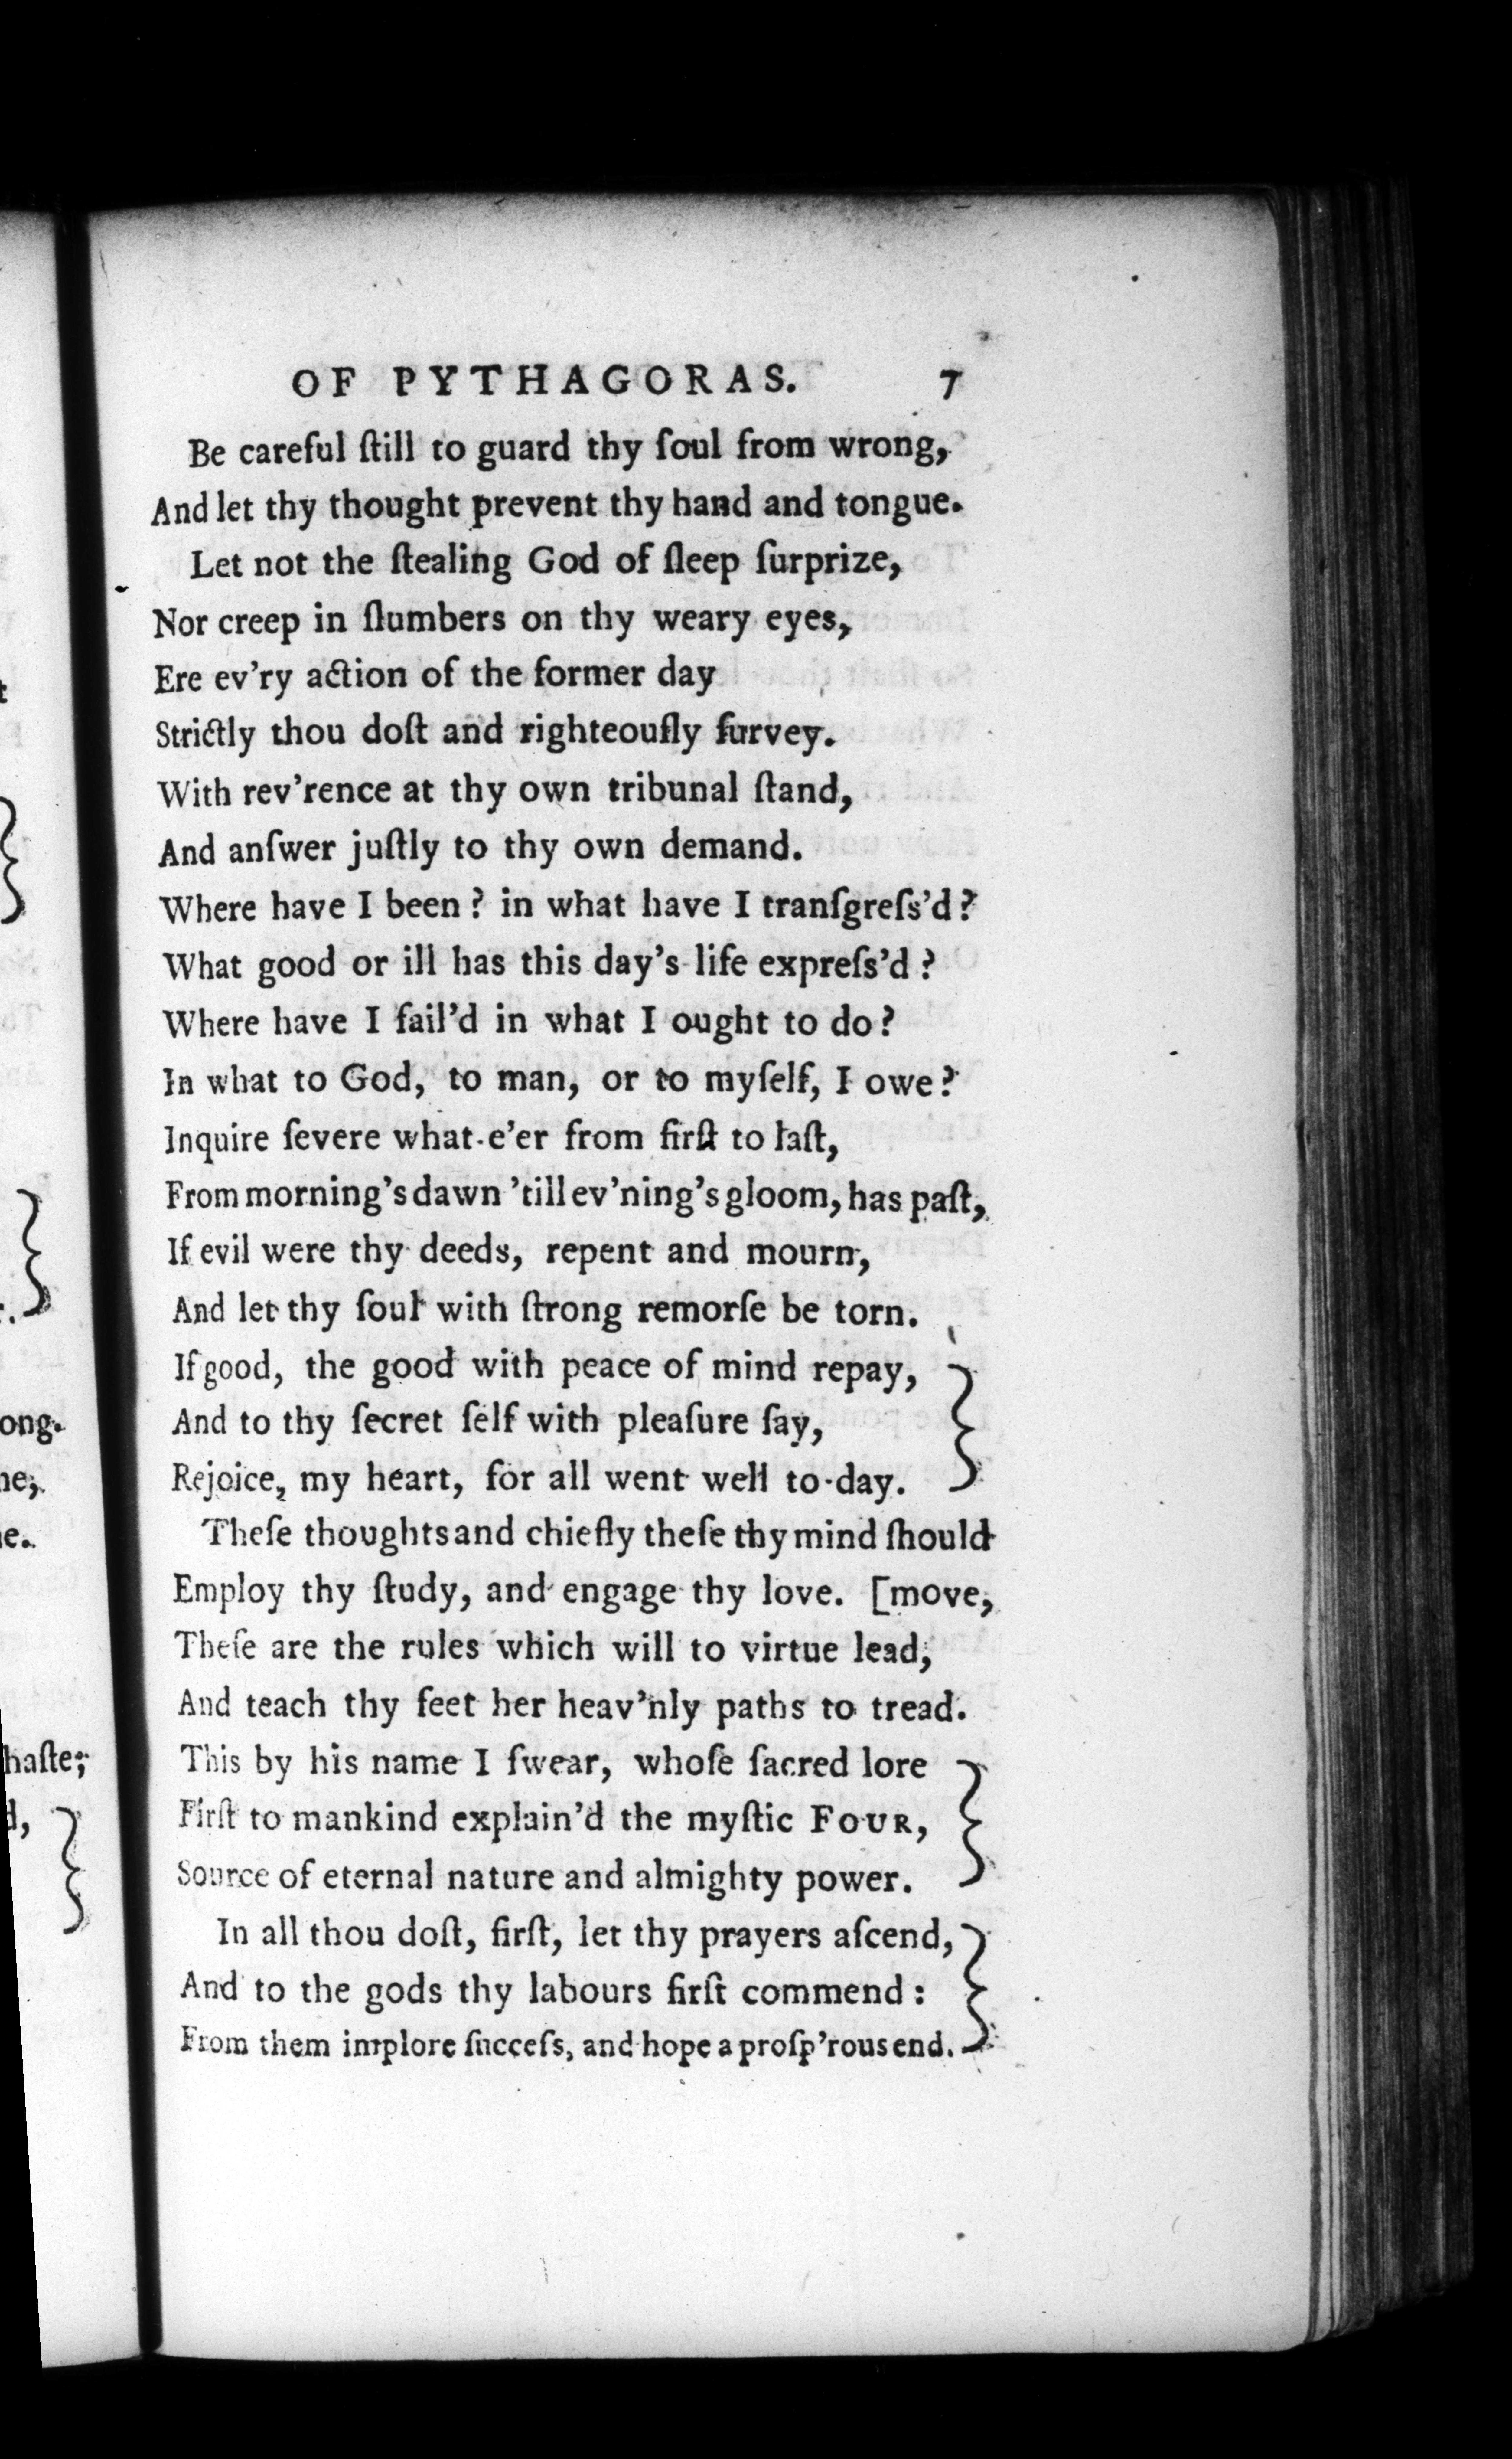 OF PYTHAGORAS. 7
Be careful ſtill to guard thy ſoul from wrong,
And let thy thought prevent thy hand and tongue.
Let not the ſtealing God of ſleep ſurprize,
Nor creep in ſlumbers on thy weary eyes,
Ere ev'ry action of the former day
Strictly thou doſt and righteouſly ſurvey.
With rev'rence at thy own tribunal ſtand,
And anſwer juſtly to thy own demand.
Where have I been? in what have I tranſgreſs'd?
What good or ill has this day's life expreſs'd?
Where have I fail'd in what I ought to do?
In what to God, to man, or to myſelf, I owe?
Inquire ſevere what-e'er from firſt to laſt,
From morning's dawn 'till ev'ning's gloom, has paſt,
If evil were thy deeds, repent and mourn,
And let thy ſoul with ſtrong remorſe be torn.
If good, the good with peace of mind repay,
And to thy ſecret ſelf with pleaſure ſay,
Rejoice, my heart, for all went well to-day.
Theſe thoughts and chiefly theſe thy mind ſhould
Employ thy ſtudy, and engage thy love. [move,
Theſe are the rules which will to virtue lead,
And teach thy feet her heav'nly paths to tread.
This by his name I ſwear, whoſe ſacred lore
Firſt to mankind explain'd the myſtic FOUR,
Source of eternal nature and almighty power.
In all thou doſt, firſt, let thy prayers aſcend,
And to the gods thy labours firſt commend:
From them implore ſucceſs, and hope a proſp'rous end.
ong.
ne,
e.
haſte;
d,